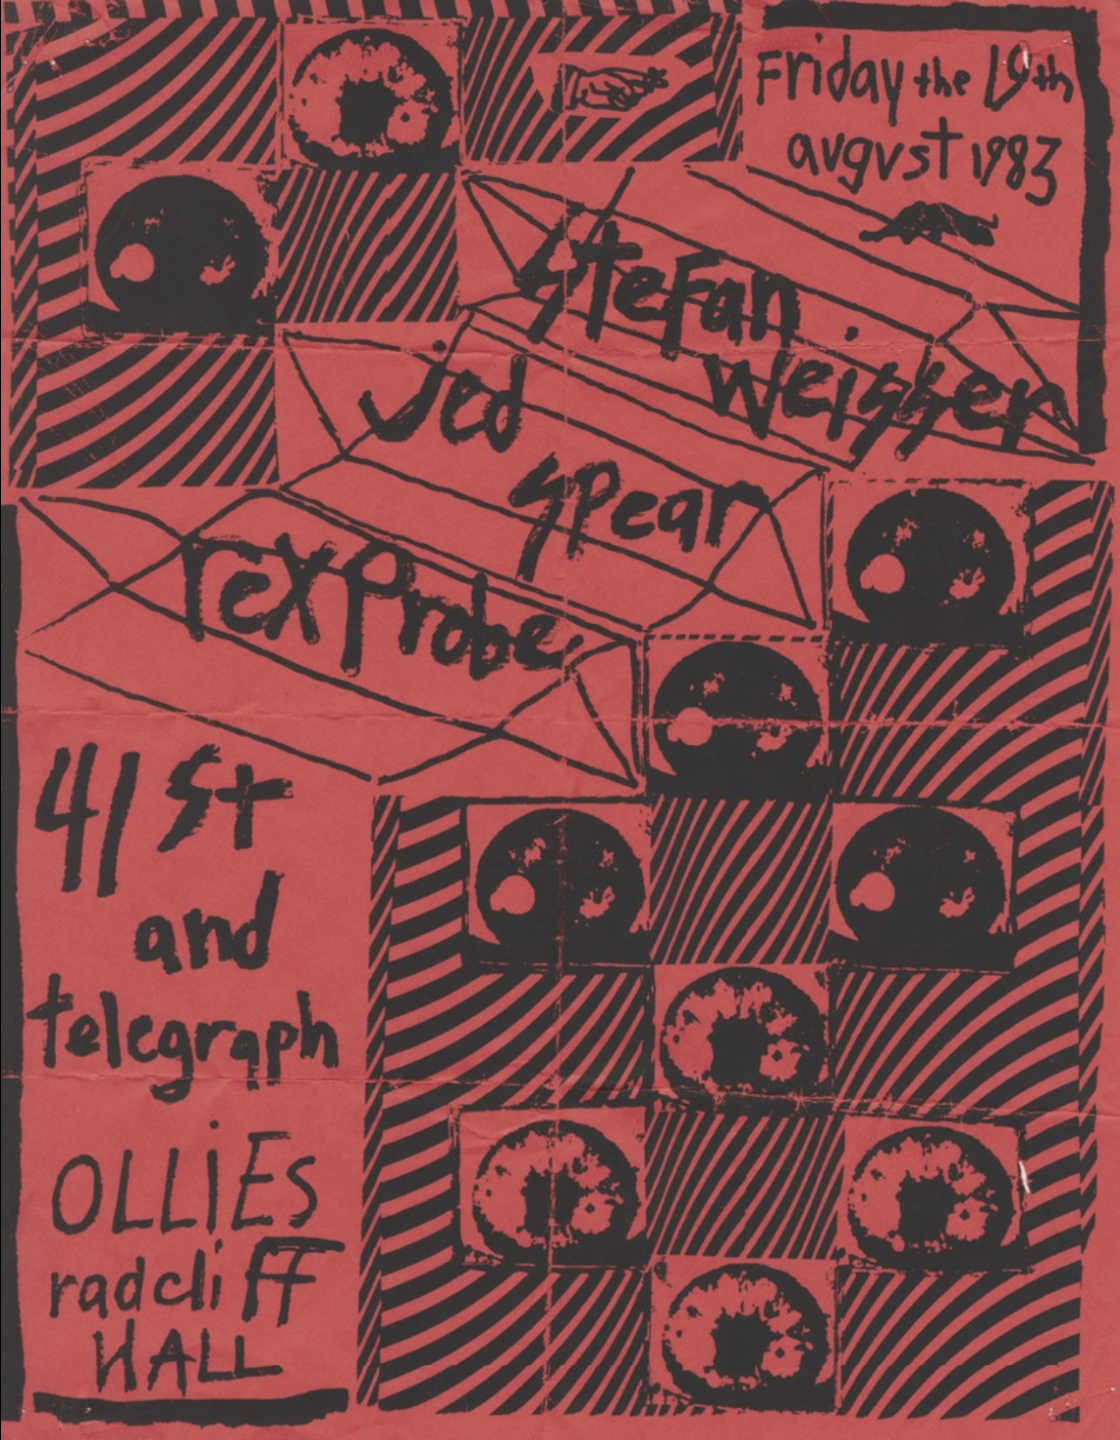 Friday the 19th
avgvst 1983
Stefan
Weisser
Jed
Spear
rex Probe
41 St
and
telegraph
OLLiES
radcliff
HALL